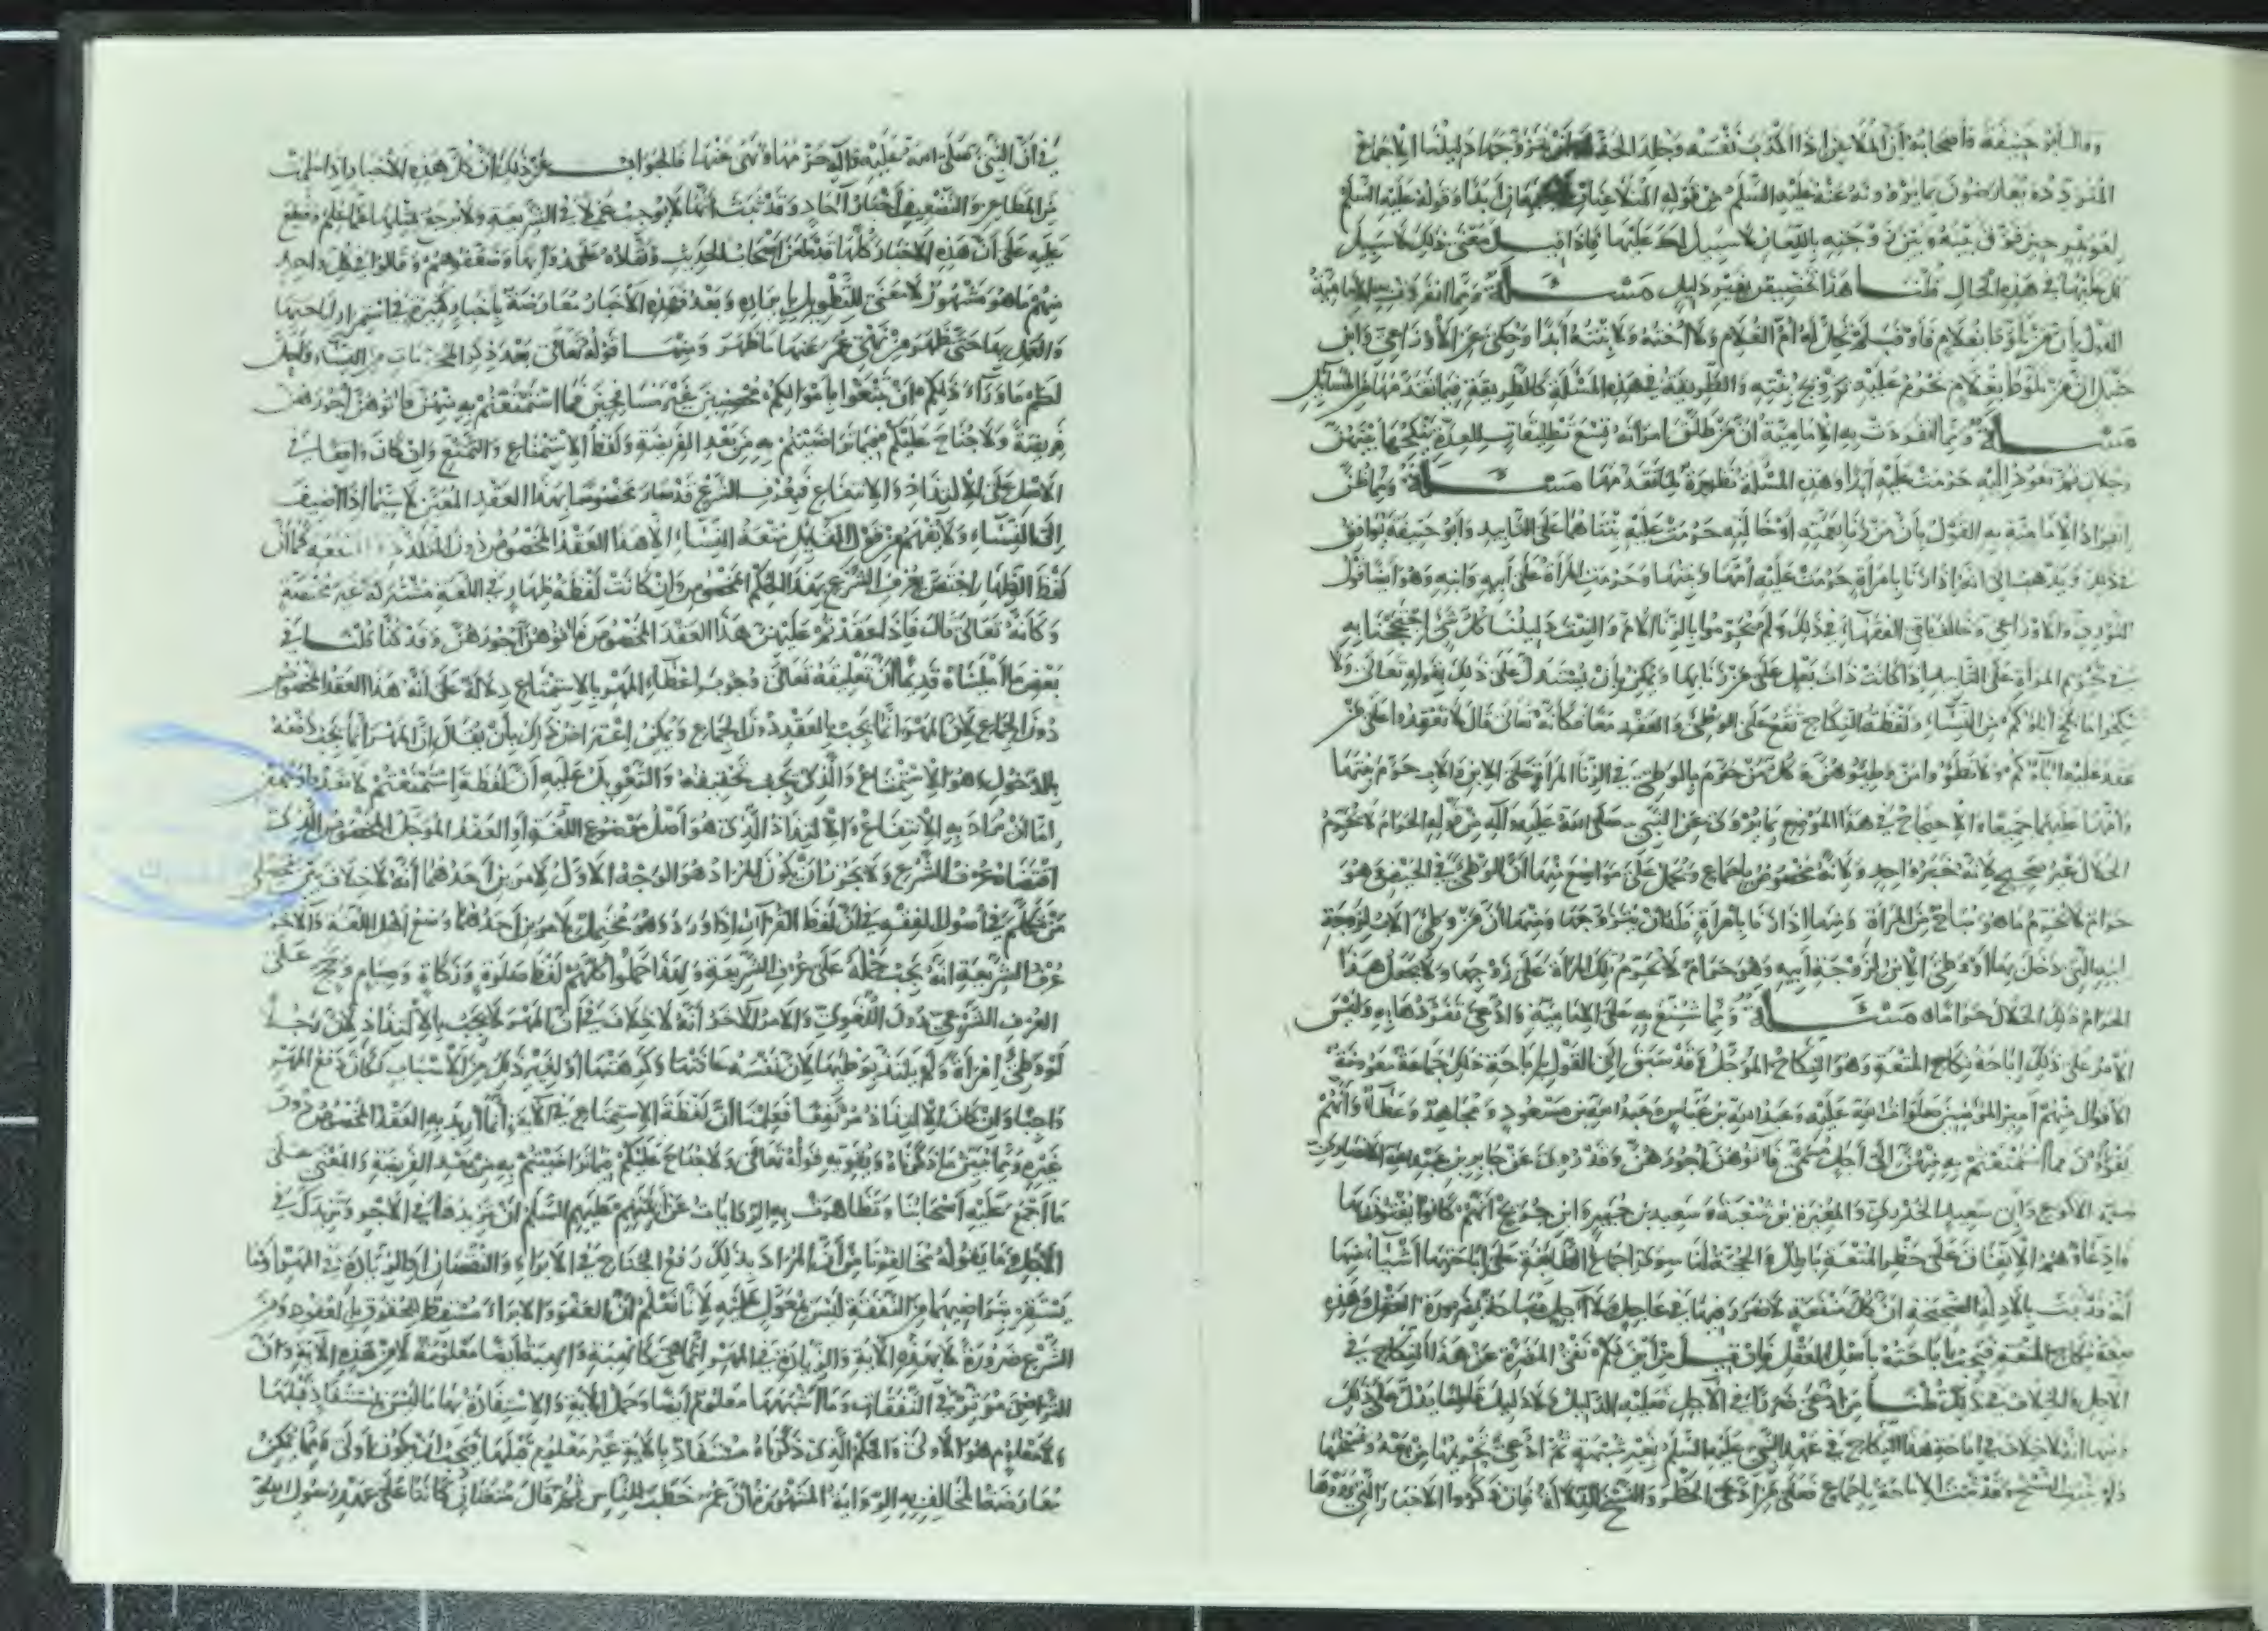 وقال أبو حنيفة وأصحابه أن الملاعن إذا أكذب نفسه وجلد الحد له أن يتزوجها دليلنا الإجماع
المتردد ويعارضون بما يروونه عنه عليه السلم من قوله المتلاعنان لا يجتمعان أبدا وقوله عليه السلم
لعويمر حين فرق بينه وبين زوجته باللعان لا سبيل لك عليها فإذا قيل معنى ذلك لا سبيل
لك عليها في هذه الحال قلنا هذا تخصيص بغير دليل مسألة ومما انفردت به الإمامية
القول بأن من تلوط بغلام فأوقب لم تحل له أم الغلام ولا أخته ولا بنته أبدا وحكي عن الأوزاعي وابن
حنبل أن من تلوط بغلام تحرم عليه تزويج بنته والطريقة في هذه المسئلة كالطريقة فيما تقدمها من المسائل
مسألة ومما انفردت به الإمامية أن من طلق امرأته تسع تطليقات للعدة ينكحها بينهن
رجلان ثم تعود إليه حرمت عليه أبدا وهذه المسئلة نظيرة لما تقدمها مسألة ومما ظن
انفراد الإمامية به القول بأن من زنا بعمته أو خالته حرمت عليه بنتاهما على التأبيد وأبو حنيفة يوافق
في ذلك ويذهب إلى أنه إذا زنا بامرأة حرمت عليه أمها وبنتها وحرمت المرأة على أبيه وابنه وهو أيضا قول
الثوري والأوزاعي وخالف باقي الفقهاء في ذلك ولم يحرموا بالزنا الأم والبنت دليلنا كل شيء احتججنا به
في تحريم المرأة على التأبيد إذا كانت ذات بعل على من زنا بها ويمكن أن يستدل على ذلك بقوله تعالى ولا
تنكحوا ما نكح آباؤكم من النساء ولفظة النكاح تقع على الوطئ والعقد معا فكأنه تعالى قال لا تعقدوا على من
عقد عليه آباؤكم ولا تطؤا من وطئوهن وكل من حرم بالوطئ في الزنا المرأة على الابن والأب حرم بنتها
وأمها عليهما جميعا والاحتجاج في هذا الموضع بما يروى عن النبي صلى الله عليه وآله من قوله الحرام لا يحرم
الحلال غير صحيح لأنه خبر واحد ولأنه مخصوص بإجماع ويحمل على مواضع منها أن الوطئ في الحيض وهو
حرام لا يحرم ما هو مباح من المرأة ومنها إذا زنا بامرأة فله أن يتزوجها ومنها أن من وطئ الأب لزوجة
ابنه التي دخل بها أو وطئ الابن لزوجة أبيه وهو حرام لا تحرم تلك المرأة على زوجها ولا يجعل هذا
الحرام ذلك الحلال حراما مسألة ومما شنع به على الإمامية وادعي تفردها به وليس
الأمر على ذلك إباحة نكاح المتعة وهو النكاح المؤجل وقد سبق إلى القول بإباحة ذلك جماعة معروفة
الأقوال منهم أمير المؤمنين صلوات الله عليه وعبد الله بن عباس وعبد الله بن مسعود ومجاهد وعطاء وأنهم
يقرؤن فما استمتعتم به منهن إلى أجل مسمى فآتوهن أجورهن وقد روي عن جابر بن عبد الله الأنصاري
سلمة الأكوع وأبي سعيد الخدري والمغيرة بن شعبة وسعيد بن جبير وابن جريج أنهم كانوا يفتون بها
وادعاؤهم الاتفاق على حظر المتعة باطل والحجة لنا سوى إجماع الطائفة على إباحتها أشياء منها
أنه قد ثبت بالأدلة الصحيحة أن كل منفعة لا ضرر فيها في عاجل ولا آجل مباحة بضرورة العقل وهذه
صفة نكاح المتعة فيجب إباحته بأصل العقل فإن قيل من أين لكم نفي المضرة عن هذا النكاح في
الآجل والخلاف في ذلك قلنا من ادعى ضررا في الآجل فعليه الدليل ولا دليل قاطعا يدل على ذلك
ومنها أنه لا خلاف في إباحة هذا النكاح في عهد النبي عليه السلم بغير شبهة ثم ادعي تحريمها من بعد ونسخها
ولم يثبت النسخ وقد ثبتت الإباحة بإجماع فعلى من ادعى الحظر والنسخ الدلالة فإن ذكروا الأخبار التي رووها
في أن النبي صلى الله عليه وآله حرمها ونهى عنها فالجواب عن ذلك أن كل هذه الأخبار إذا سلمت
من المطاعن والتضعيف أخبار آحاد وقد ثبت أنها لا توجب عملا في الشريعة ولا يرجع بمثلها عما علم وقطع
عليه على أن هذه الأخبار كلها قد طعن أصحاب الحديث ونقلاه على رواتها وضعفوهم وقالوا في كل واحد
منهم ما هو مشهور لا معنى للتطويل بإيراده وبعد فهذه الأخبار معارضة بأخبار كثيرة في استمرار إباحتها
والعمل بها حتى ظهر من نهي عمر عنها ما ظهر ومنها قوله تعالى بعد ذكر المحرمات من النساء وأحل
لكم ما وراء ذلكم أن تبتغوا بأموالكم محصنين غير مسافحين فما استمتعتم به منهن فآتوهن أجورهن
فريضة ولا جناح عليكم فيما تراضيتم به من بعد الفريضة ولفظ الاستمتاع والتمتع وإن كان واقعا في
الأصل على الالتذاذ والانتفاع فبعرف الشرع قد صار مخصوصا بهذا العقد المعين لا سيما إذا أضيف
إلى النساء ولا يفهم من قول القائل متعة النساء إلا هذا العقد المخصوص دون التلذذ والمنفعة كما أن
لفظ الظهار اختص بعرف الشرع بهذا الحكم المخصوص وإن كانت لفظة ظهار في اللغة مشتركة غير مختصة
وكأنه تعالى قال فإذا عقدتم عليهن هذا العقد المخصوص فآتوهن أجورهن وقد كنا قلنا في
بعض ما أمليناه قديما أن تعليقه تعالى وجوب إعطاء المهر بالاستمتاع دلالة على أنه هذا العقد المخصوص
دون الجماع لأن المهر إنما يجب بالعقد دون الجماع ويمكن اعتراض ذلك بأن يقال إن المهر إنما يجب دفعه
بالدخول وهو الاستمتاع والذي يجب تحقيقه والتعويل عليه أن لفظة استمتعتم لا تعدو أمرين
إما أن يراد به الانتفاع والالتذاذ الذي هو أصل موضوع اللغة أو العقد المؤجل المخصوص الذي
اقتضاه عرف الشرع ولا يجوز أن يكون المراد هو الوجه الأول لأمرين أحدهما أنه لا خلاف بين محصلي
من تكلم في أصول الفقه في أن لفظ القرآن إذا ورد وهو محتمل لأمرين أحدهما وضع أهل اللغة والآخر
عرف الشريعة أنه يجب حمله على عرف الشريعة ولهذا حملوا كلهم لفظ صلوة وزكاة وصيام وحج على
العرف الشرعي دون اللغوي والأمر الآخر أنه لا خلاف في أن المهر لا يجب بالالتذاذ لأن رجلا
لو وطئ امرأة ولم يلتذ بوطئها لأن نفسه عافتها وكرهتها أو لغير ذلك من الأسباب لكان دفع المهر
واجبا وإن كان الالتذاذ مرتفعا فعلمنا أن لفظة الاستمتاع في الآية إنما أريد به العقد المخصوص دون
غيره ومما يبين ما ذكرناه ويقويه قوله تعالى ولا جناح عليكم فيما تراضيتم به من بعد الفريضة والمعنى على
ما أجمع عليه أصحابنا وتظاهرت به الروايات عن أئمتهم عليهم السلم أن تزيدها في الأجر وتزيدك في
الأجل وما يقوله مخالفونا من أن المراد بذلك رفع الجناح في الإبراء والنقصان أو الزيادة في المهر أو ما
يستقر بتراضيهما من النفقة ليس بمعول عليه لأنا نعلم أن العفو والإبراء مسقط للحقوق بالعقول ومن
الشرع ضرورة لا بهذه الآية والزيادة في المهر إنما هي كالهبة والهبة أيضا معلومة لا من هذه الآية وأن
التراضي مؤثر في النفقات وما أشبهها معلوم أيضا وحمل الآية والاستفادة بها ما ليس بمستفاد قبلها
ولا معلوم هو الأولى والحكم الذي ذكرناه مستفاد بالآية غير معلوم قبلها فيجب أن يكون أولى ومما يمكن
معارضة المخالف به الرواية المشهورة أن عمر خطب الناس ثم قال متعتان كانتا على عهد رسول الله